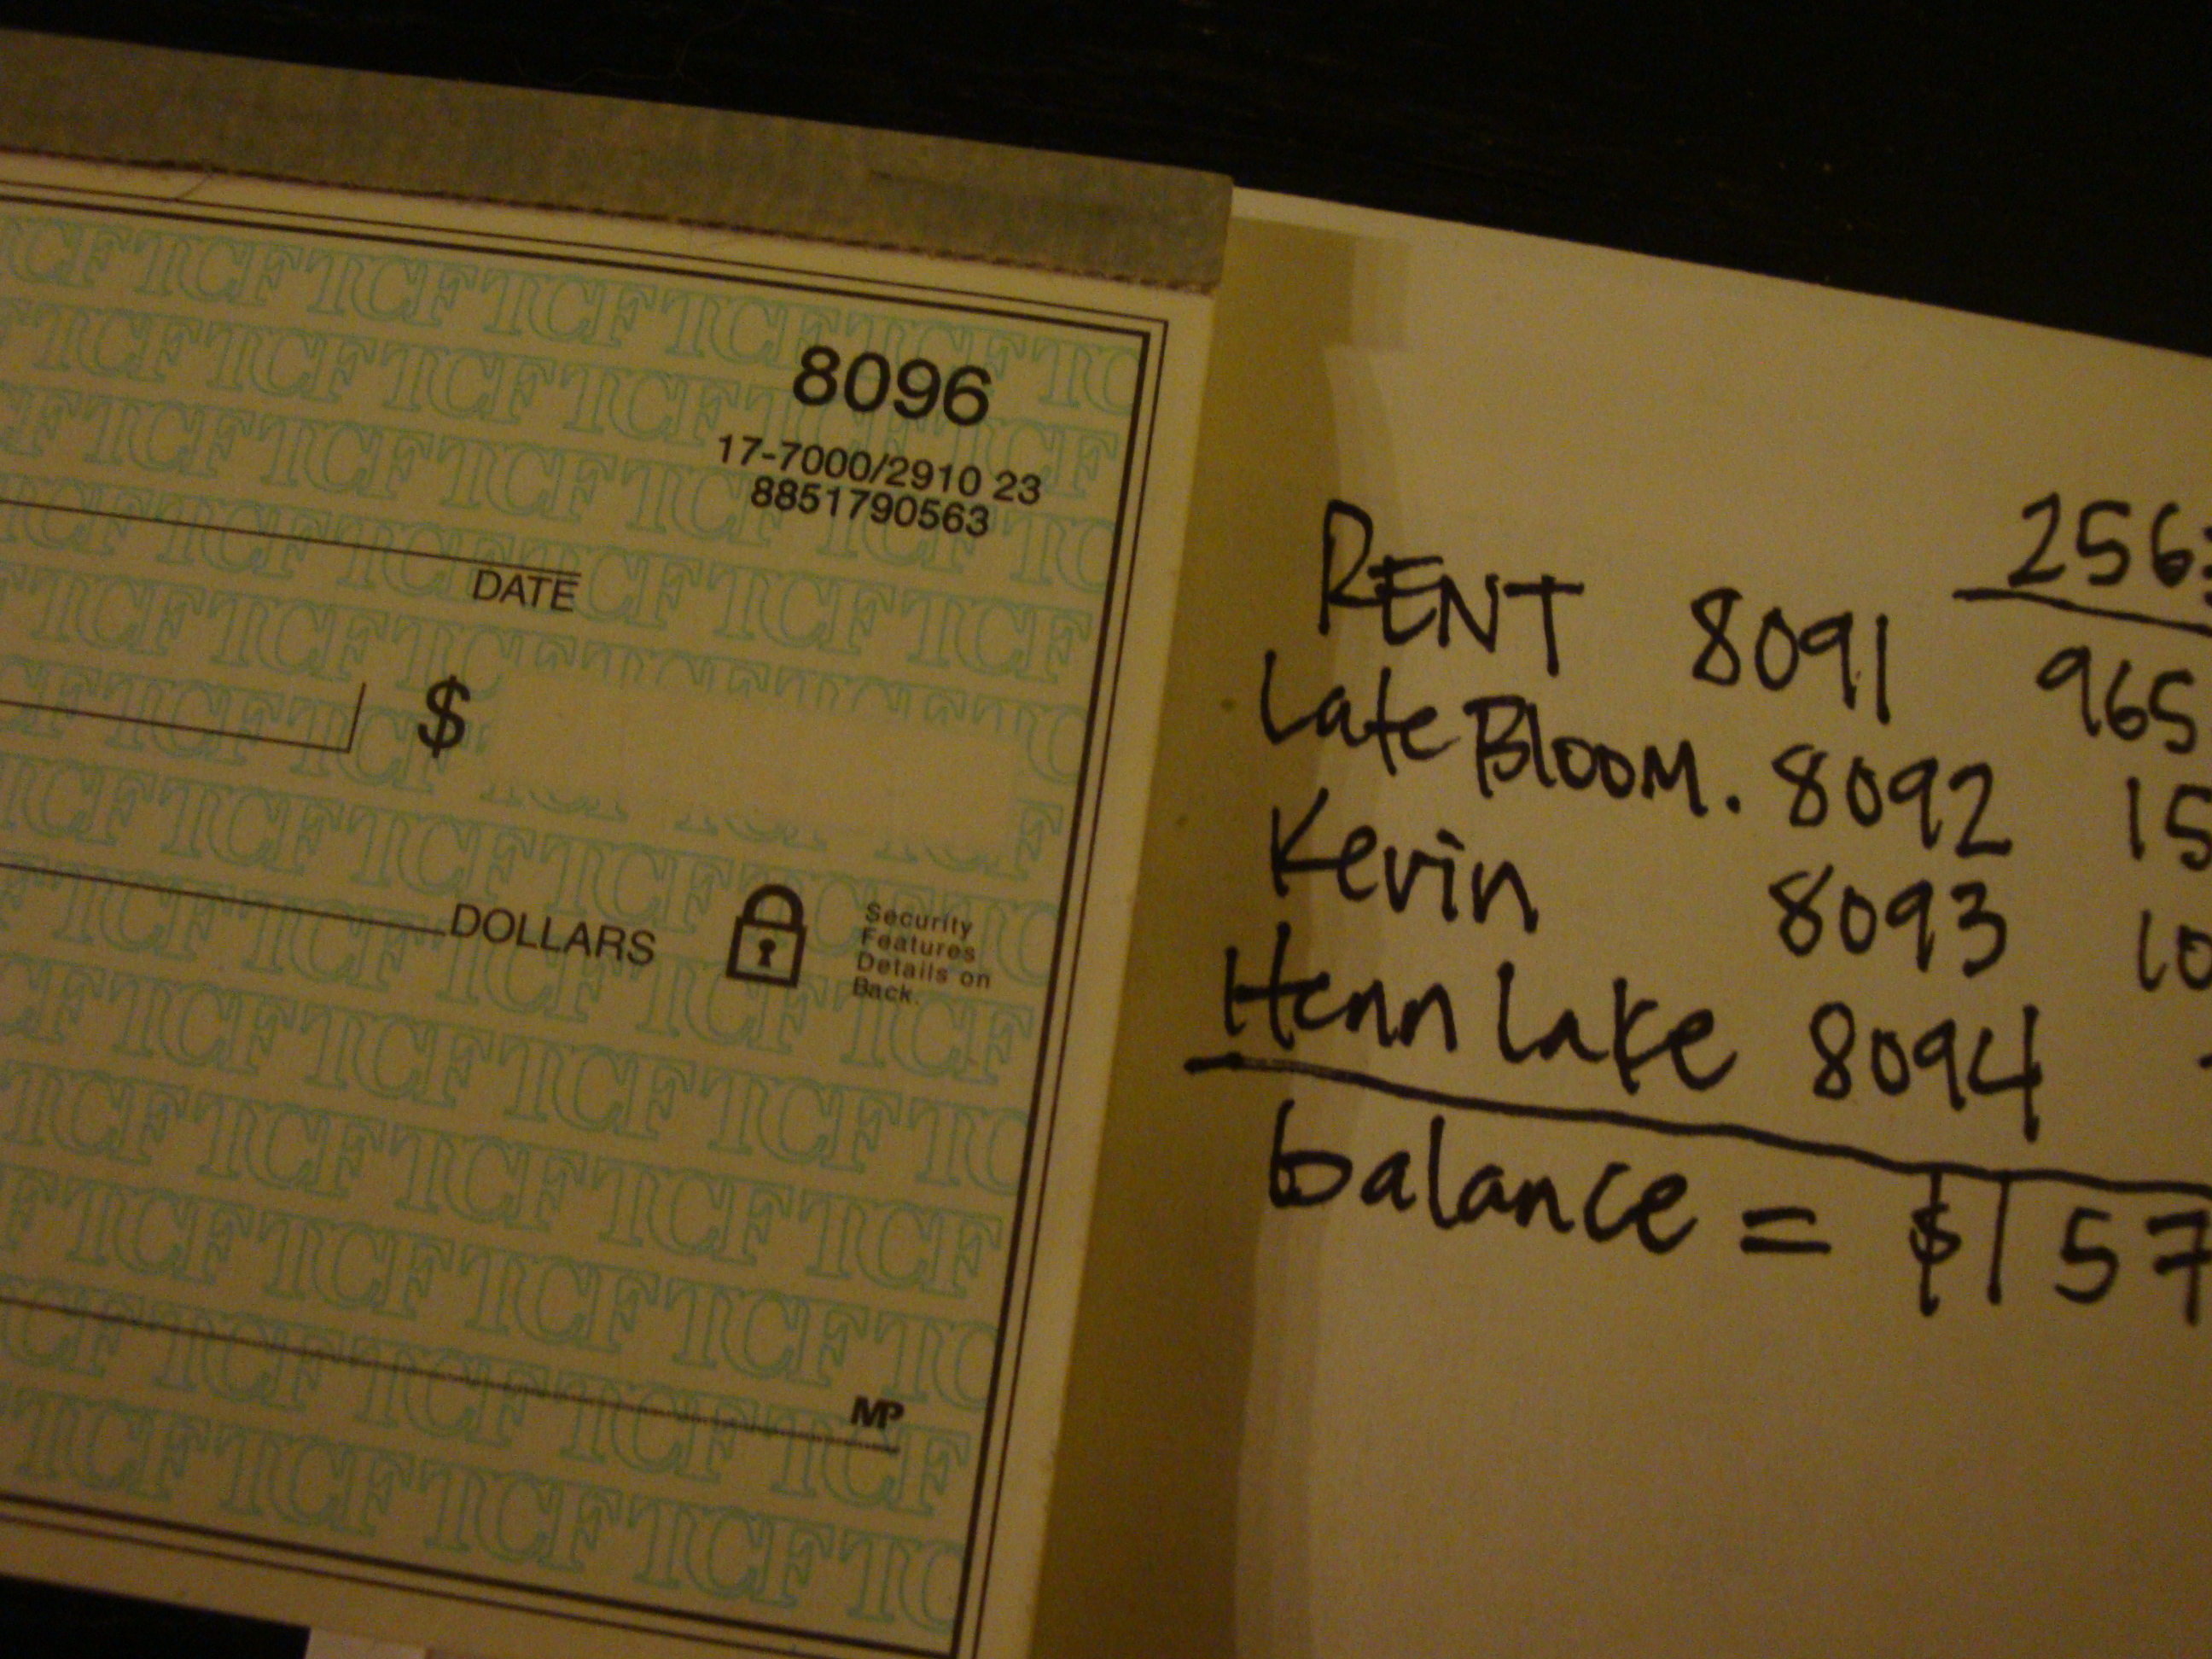 8096
17-7000/2910 23
8851790563
DATE
$
DOLLARS
Security
Features
Details on
Back.
MP
256
RENT 8091 965
Late Bloom. 8092 15
Kevin 8093 10
Henn Lake 8094
balance = $157